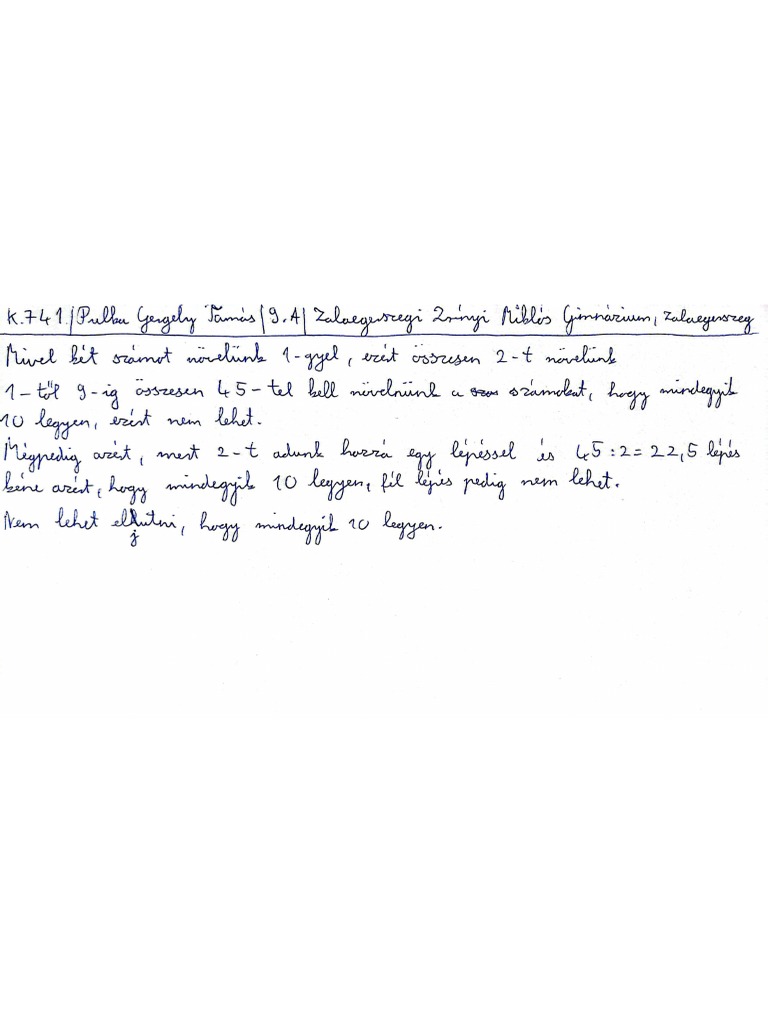 K.741./Pulka Gergely Tamás/9.A/ Zalaegerszegi Zrínyi Miklós Gimnázium, Zalaegerszeg
Mivel két számot növelünk 1-gyel, ezért összesen 2-t növelünk
1-től 9-ig összesen 45-tel kell növelnünk a számokat, hogy mindegyik
10 legyen, ezért nem lehet.
Mégpedig azért, mert 2-t adunk hozzá egy lépéssel és 45:2=22,5 lépés
kéne azért, hogy mindegyik 10 legyen, fél lépés pedig nem lehet.
Nem lehet eljutni, hogy mindegyik 10 legyen.